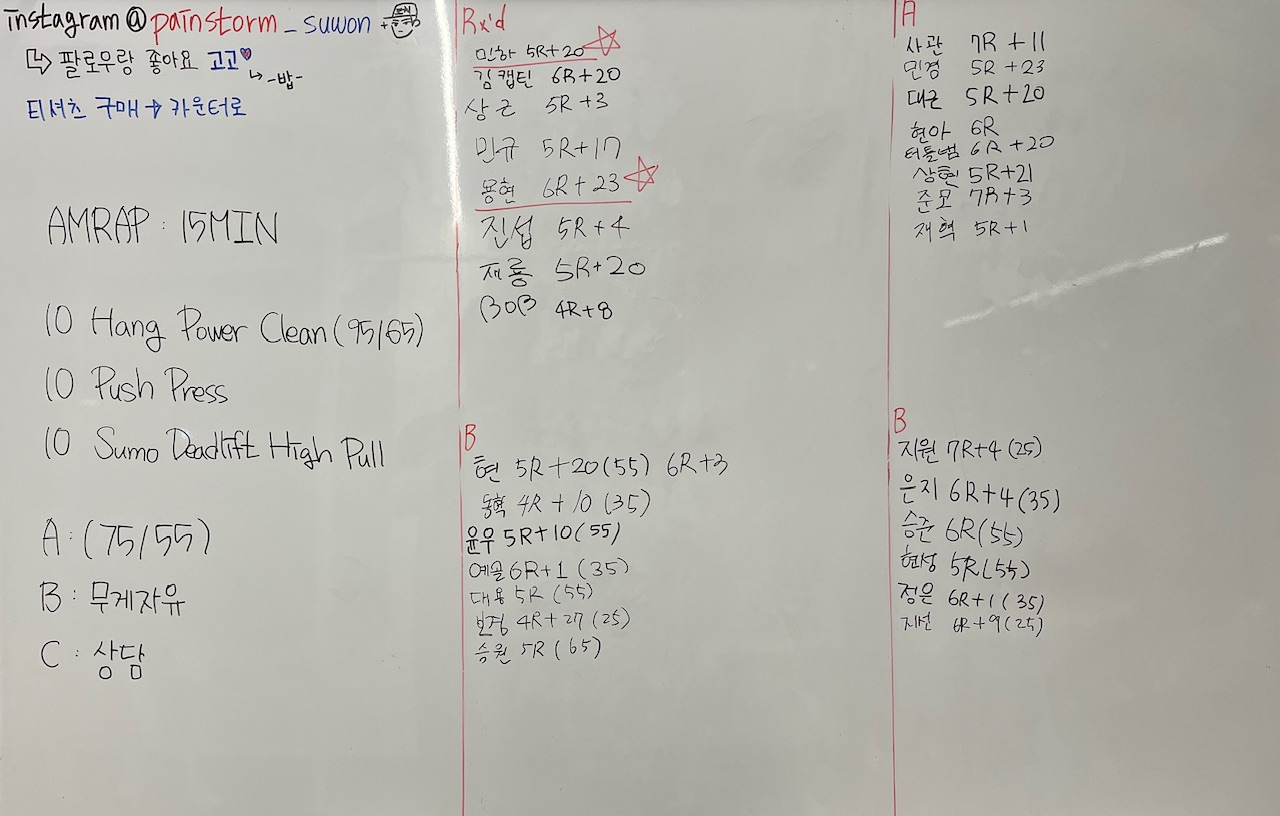 instagram@painstorm_suwon
팔로우랑 좋아요 고고
-밥-
티셔츠 구매 → 카운터로
AMRAP : 15MIN
10 Hang Power Clean (95/65)
10 Push Press
10 Sumo Deadlift High Pull
A : (75/55)
B : 무게자유
C : 상담
Rx'd
민하 5R+20
김캡틴 6R+20
상근 5R+3
민규 5R+17
용현 6R+23
진섭 5R+4
재룡 5R+20
BOB 4R+8
B
현 5R+20(55) 6R+3
동혁 4R+10 (35)
윤우 5R+10(55)
예솔 6R+1 (35)
대용 5R (55)
보경 4R+27 (25)
승원 5R (65)
A
사관 7R+11
민경 5R+23
대근 5R+20
현아 6R
터틀범 6R+20
상현 5R+21
준모 7R+3
재혁 5R+1
B
지원 7R+4 (25)
은지 6R+4(35)
승준 6R(55)
현성 5R(55)
정은 6R+1(35)
지선 6R+9(25)